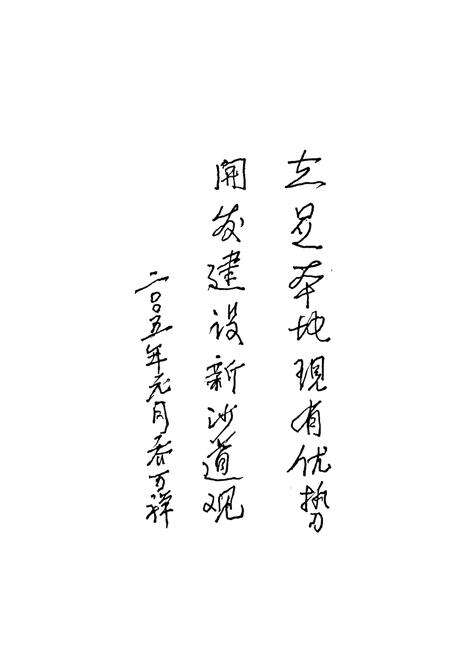 立足本地現有优势
開发建设新沙道观
二〇〇五年元月春万祥